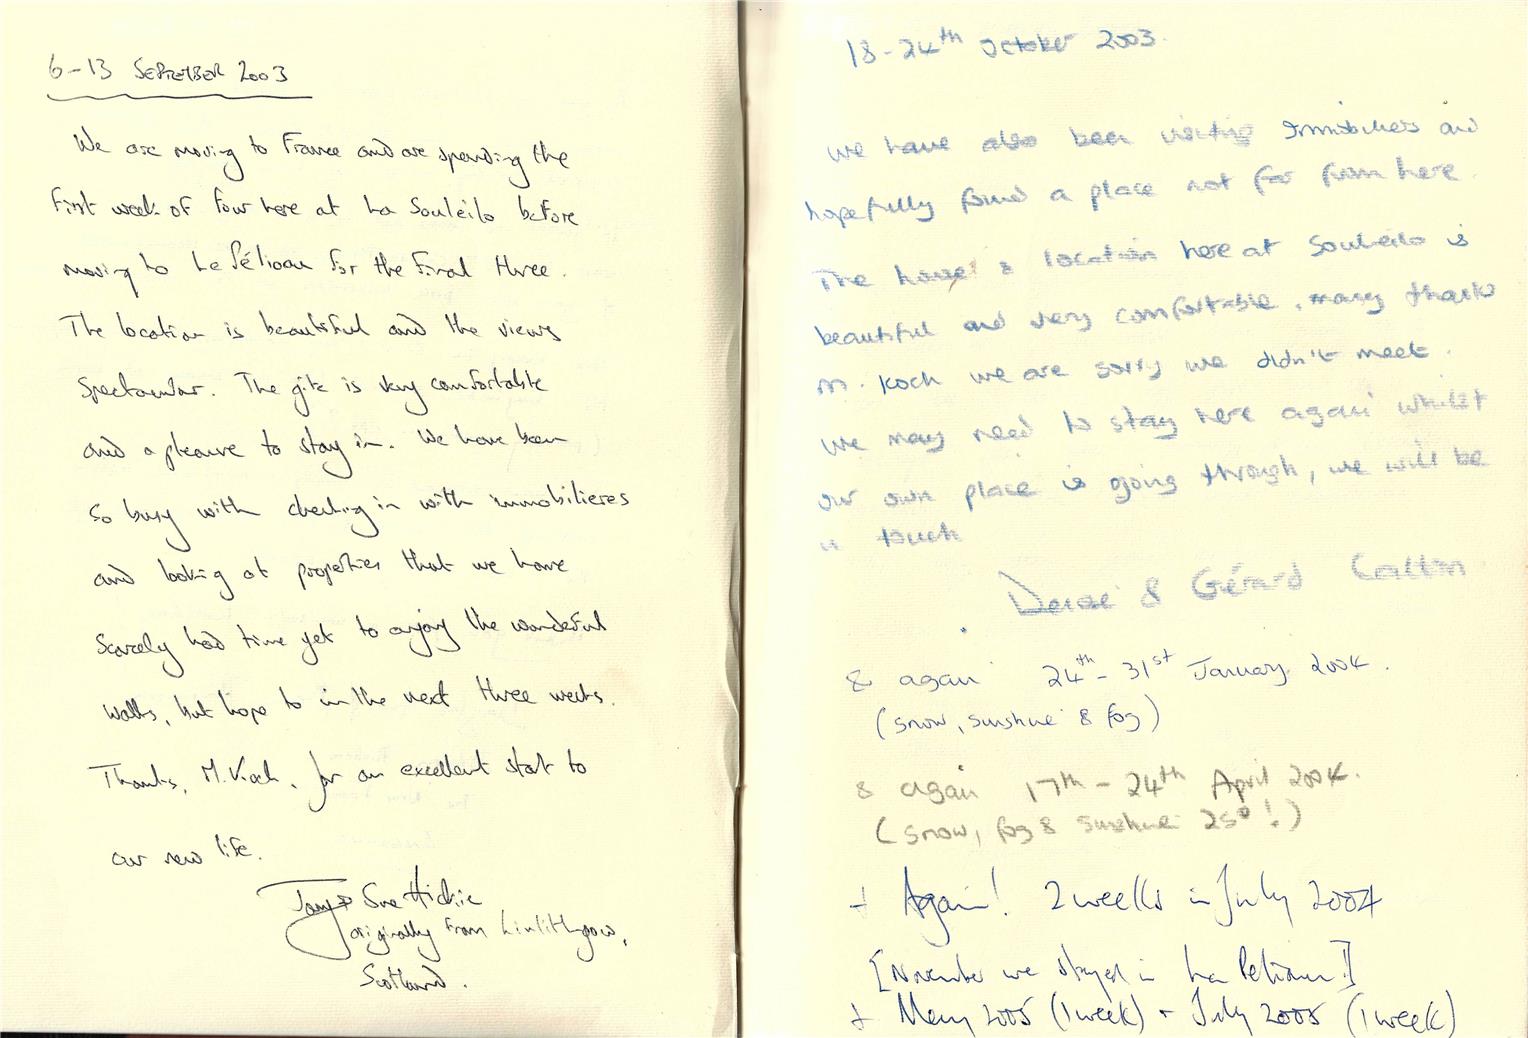 6-13 SEPTEMBER 2003
We are moving to France and are spending the
first week of four here at La Souleilo before
moving to Le Pélioau for the final three.
The location is beautiful and the views
spectacular. The gite is very comfortable
and a pleasure to stay in. We have been
so busy with checking in with immobilieres
and looking at properties that we have
scarcely had time yet to enjoy the wonderful
walks, but hope to in the next three weeks.
Thanks, M. Koch, for an excellent start to
our new life.
Tony & Sue Hickie
originally from Linlithgow,
Scotland.
18-24th October 2003.
We have also been visiting Immobiliers and
hopefully found a place not far from here.
The house & location here at Souleilo is
beautiful and very comfortable, many thanks
M. Koch we are sorry we didn't meet.
We may need to stay here again whilst
our own place is going through, we will be
in touch
& Gérard
& again 24th - 31st January 2004.
(snow, sunshine & fog)
& again 17th - 24th April 2004.
(snow, fog & sunshine 25°!)
+ Again! 2 weeks in July 2004
[November we stayed in La Peliour!]
+ May 2005 (1 week) + July 2005 (1 week)